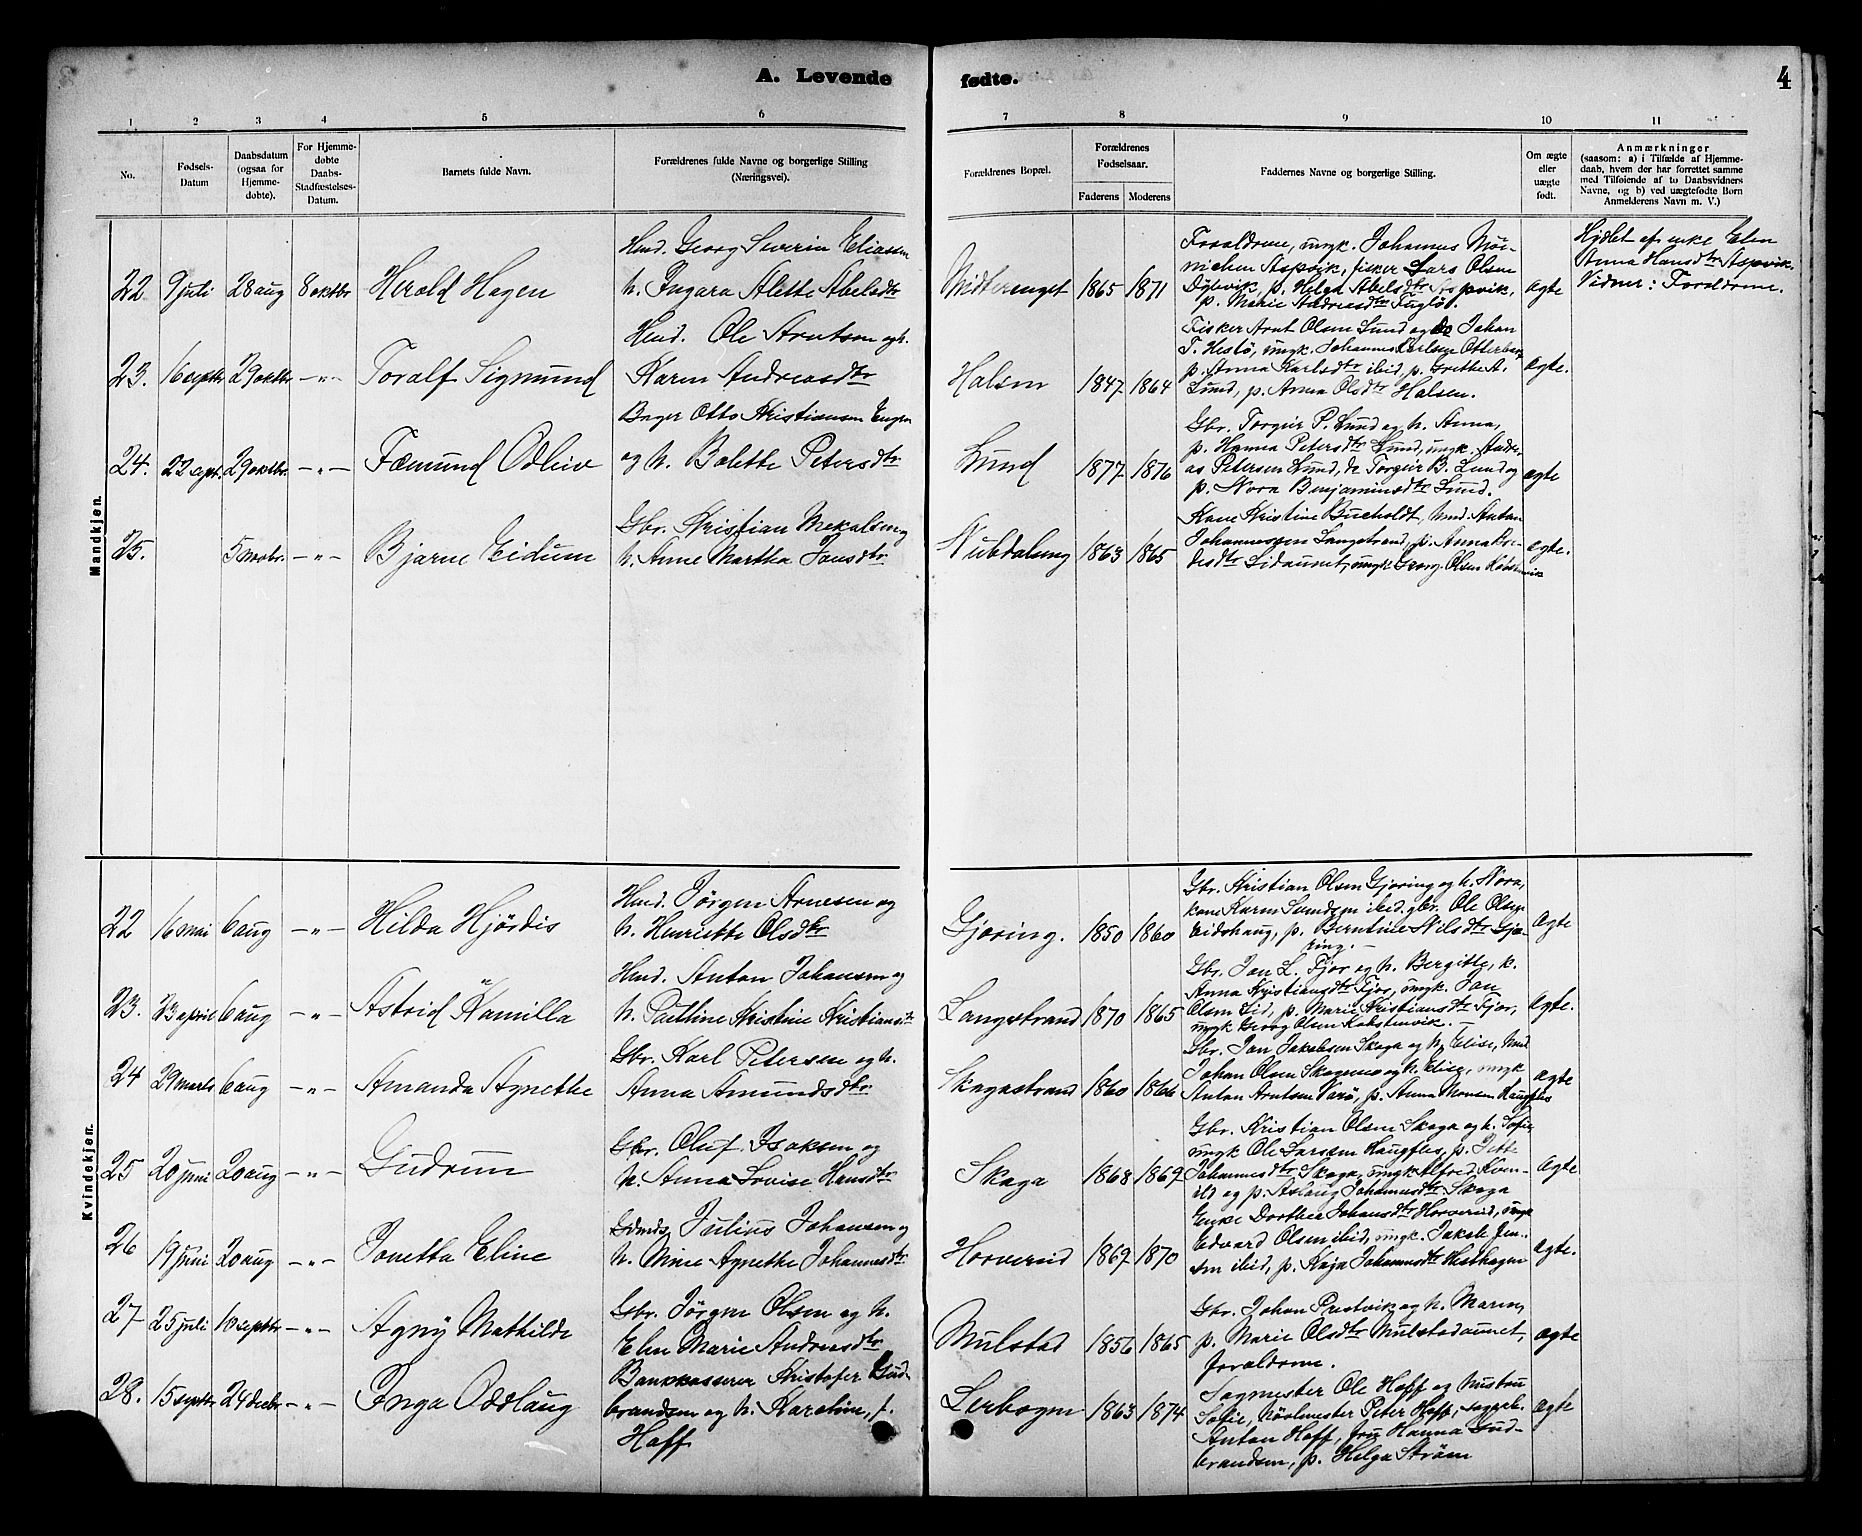 A. Levende fødte.
4
1 2 3 4 5 6 7 8 9 10 11
No.
Fødsels-
Datum
Daabsdatum
(ogsaa for
Hjemme-
døbte).
For Hjemme-
døbte
Daabs-
Stadfæstelses-
Datum.
Barnets fulde Navn.
Forældrenes fulde Navne og borgerlige Stilling
(Næringsvei).
Forældrenes Bopæl.
Forældrenes
Fødselsaar.
Faderens Moderens
Faddernes Navne og borgerlige Stilling.
Om ægte
eller
uægte
født.
Anmærkninger
(saasom: a) i Tilfælde af Hjemme-
daab, hvem der har forrettet samme
med Tilføiende af to Daabsvidners
Navne, og b) ved uægtefødte Børn
Anmelderens Navn m. V.)
Mandkjøn.
22 9 juli 28 aug 8 oktbr Herold Hagen
Hmd. Georg Severin Eliasen
h. Ingara Alette Abelsdtr
1865 1871
Forældrene, ungk. Johannes
Aspvik, fisker Lars Olsen
p. Helga Abelsdtr Aspvik,
p. Marie Andreasdtr Fuglø.
ægte
Hjdbt af enke Elen
Anna Hansdtr Aspvik.
Vidner: Forældrene.
23. 16 septbr 29 oktbr - " - Toralf Sigmund
Hmd. Ole Arntsen og h.
Karen Andreasdtr
Halsen 1847 1864
Fisker Arnt Olsen Lund og do Johan
T. Hestö, ungk. Johannes Karlsen
p. Anna Karlsdtr ibid, p. Grethe A.
Lund, p. Anna Olsdtr Halsen.
ægte.
24. 22 sept. 29 oktbr. - " - Fæmund Odleiv
Bager Otto Kristiansen Engen
og h. Bolette Petersdtr
Lund 1877 1876
Gbr. Torgeir P. Lund og h. Anna,
p. Hanna Petersdtr Lund, ungk. Andre-
as Petersen Lund, do Torgeir B. Lund og
p. Nora Benjaminsdtr Lund.
ægte
25. 5 novbr. - " - Bjarne Eidum
Gbr. Kristian Mekalsen og
h. Anne Martha Jonsdtr
Nubdalung 1863 1865
Kone Kristine Bucholdt, hmd. Anton
Johannessen Langstrand, p. Anna
Lidaunet, ungk Georg Olsen
ægte.
Kvindekjøn.
22 16 mai 6 aug - " - Hilda Hjördis
Hmd. Jörgen Arnesen og
h. Henriette Olsdtr
Gjæring. 1850 1860
Gbr. Kristian Olsen Gjæring og h. Nora,
kone Karen Svendsen ibid. gbr. Ole Olsen
Eidshaug, p. Berntine Nilsdtr Gjæ-
ring. -
ægte
23. 23 april 6 aug - " - Astrid Kamilla
Hmd. Anton Johansen og
h. Pauline Kristine Kristiansdtr
Langstrand 1870 1865
Gbr. Jon L. Fjær og h. Bergitte, k.
Anna Kristiansdtr Fjær, ungk. Jon
Olsen Lid, p. Marie Kristiansdtr Fjær,
ungk Georg Olsen
ægte.
24 29 marts 6 aug - " - Amanda Agnethe
Gbr. Karl Petersen og h.
Anna Amundsdtr
Skagastrand 1860 1866
Gbr. Jon Jakobsen Skaga og h. Elise, hmd
Johan Olsen og h. Elise, ungk
Anton Arntsen Varö, p. Anna Haugfles
ægte
25 20 juni 20 aug - " - Gudrun
Gbr. Oluf Isaksen og
h. Anna Lovise Hansdtr
Skaga 1868 1869
Gbr. Kristian Olsen Skaga og h. Sofie,
ungk Ole Larsen Haugfles, p. Jette
Johannesdtr Skaga, ungk Alfred Kven-
ild og p. Aslaug Johannesdtr Skaga
ægte
26 19 juni 20 aug - " - Jonetta Eline
Julius Johansen og
h. Mine Agnethe Johannesdtr
Horvereid 1869 1870
Enke Dorthea Johansdtr Horvereid, ungk
Edvard Olsen ibid, ungk. Jakob Jen-
sen ibid, p. Kaja Johannesdtr Hesthagen
ægte.
27 25 juli 10 septbr - " - Agny Mathilde
Gbr. Jörgen Olsen og h.
Elen Marie Andreasdtr
Mulstad 1856 1865
Gbr. Johan Prestvik og h. Maren,
p. Marie Olsdtr Mulstadaunet,
forældrene.
ægte
28. 15 septbr 24 decbr - " - Inga Oddlaug
Bankkasserer Kristofer Gud-
brandsen og h. Karoline, f.
Hoff
Lerbogen 1863 1874
Sagmester Ole Hoff og hustru
Sofie, Høvlmester Peter Hoff, sagarb.
Anton Hoff, fru Hanna Gud-
brandsen, p. Helga Strøm
ægte